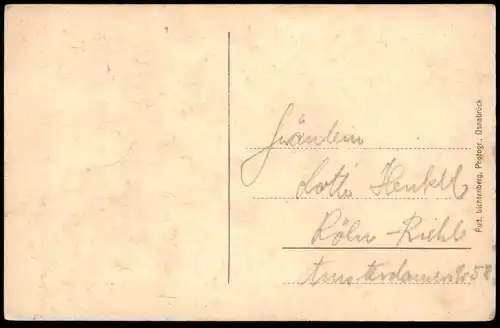 Fräulein
Lotte Henkel
Köln - Riehl
Amsterdamerstr 58
Rud. Lichtenberg, Photogr., Osnabrück